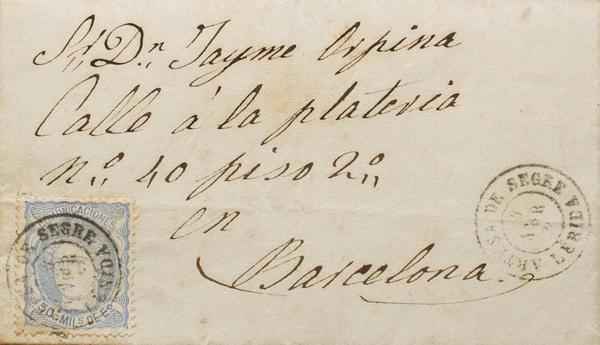 Sr. Dn. Jayme Orpina
Calle á la plateria
nº 40 piso 2º
en
Barcelona
COMUNICACIONES
50. MILS. DE Eº
SEGRE
DE SEGRE
LERIDA
ABR